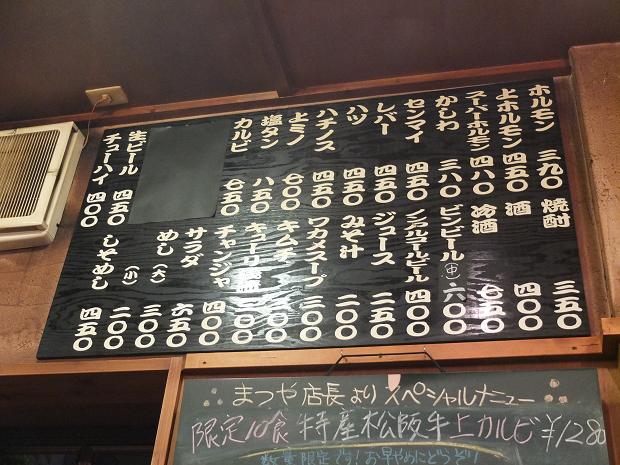 ホルモン 三九〇
上ホルモン 四五〇
スーパーホルモン 四八〇
かしわ 三八〇
センマイ 四五〇
レバー 四五〇
ハツ 四五〇
ハチノス 四五〇
上ミノ 七〇〇
塩タン 八五〇
カルビ 七五〇
生ビール 四五〇
チューハイ 四〇〇
焼酎 三五〇
酒 四〇〇
冷酒 七五〇
ビンビール(中) 六〇〇
ノンアルコールビール 四〇〇
ジュース 二五〇
みそ汁 二〇〇
ワカメスープ 三〇〇
キムチ 三〇〇
チャンジャ 四〇〇
サラダ 六五〇
めし(大) 三〇〇
(小) 二〇〇
しそめし 四五〇
まつや店長よりスペシャルメニュー
限定10食 特産松阪牛上カルビ ¥1280
数量限定です!お早めにどうぞ!